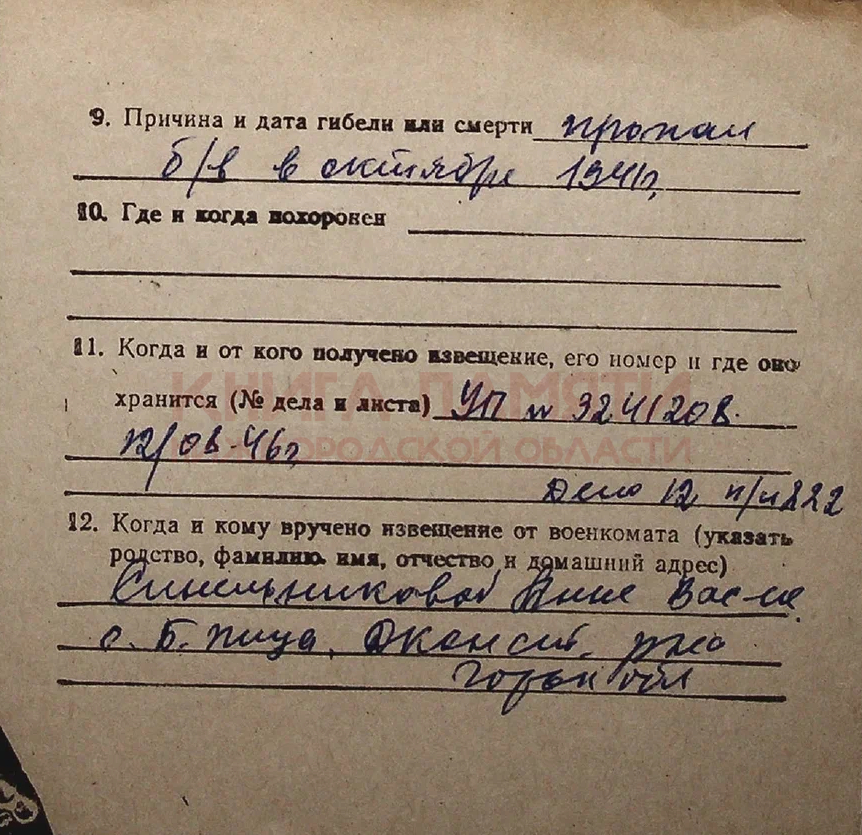 9. Причина и дата гибели или смерти пропал
б/в в октябре 1941г.
10. Где и когда похоронен
11. Когда и от кого получено извещение, его номер и где оно
КНИГА ПАМЯТИ
хранится (№ дела и листа) УП № 32411208.
НИЖЕГОРОДСКОЙ ОБЛАСТИ
12/08-46г.
Дело 12 п/п 222
12. Когда и кому вручено извещение от военкомата (указать
родство, фамилию, имя, отчество и домашний адрес)
Синельниковой Анне Вас-не
с. Б. Пица, Д.Констнт. р-на
Горьк обл